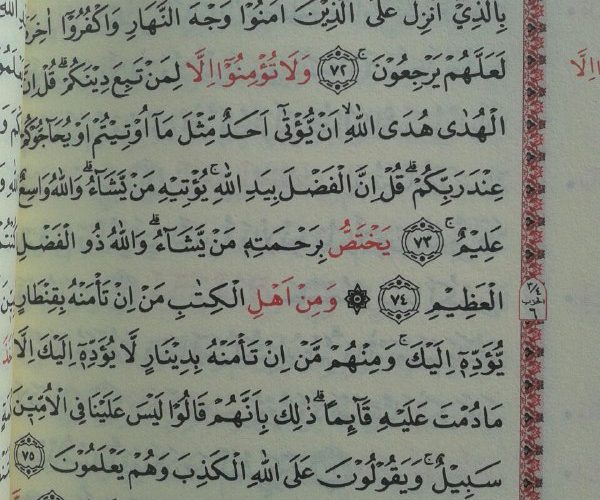 بِالَّذِيْٓ اُنْزِلَ عَلَى الَّذِيْنَ اٰمَنُوْا وَجْهَ النَّهَارِ وَاكْفُرُوْٓا اٰخِرَهٗ
لَعَلَّهُمْ يَرْجِعُوْنَۚ ٧٢ وَلَا تُؤْمِنُوْٓا اِلَّا لِمَنْ تَبِعَ دِيْنَكُمْۗ قُلْ اِنَّ
الْهُدٰى هُدَى اللّٰهِۙ اَنْ يُّؤْتٰىٓ اَحَدٌ مِّثْلَ مَآ اُوْتِيْتُمْ اَوْ يُحَاۤجُّوْكُمْ
عِنْدَ رَبِّكُمْۗ قُلْ اِنَّ الْفَضْلَ بِيَدِ اللّٰهِۚ يُؤْتِيْهِ مَنْ يَّشَاۤءُۗ وَاللّٰهُ وَاسِعٌ
عَلِيْمٌۚ ٧٣ يَخْتَصُّ بِرَحْمَتِهٖ مَنْ يَّشَاۤءُۗ وَاللّٰهُ ذُو الْفَضْلِ
الْعَظِيْمِ ٧٤ ۞ وَمِنْ اَهْلِ الْكِتٰبِ مَنْ اِنْ تَأْمَنْهُ بِقِنْطَارٍ
يُّؤَدِّهٖٓ اِلَيْكَۚ وَمِنْهُمْ مَّنْ اِنْ تَأْمَنْهُ بِدِيْنَارٍ لَّا يُؤَدِّهٖٓ اِلَيْكَ اِلَّا
مَا دُمْتَ عَلَيْهِ قَاۤىِٕمًاۗ ذٰلِكَ بِاَنَّهُمْ قَالُوْا لَيْسَ عَلَيْنَا فِى الْاُمِّيّٖنَ
سَبِيْلٌۚ وَيَقُوْلُوْنَ عَلَى اللّٰهِ الْكَذِبَ وَهُمْ يَعْلَمُوْنَ ٧٥
اِلَّا
٣/٤
الحزب
٦